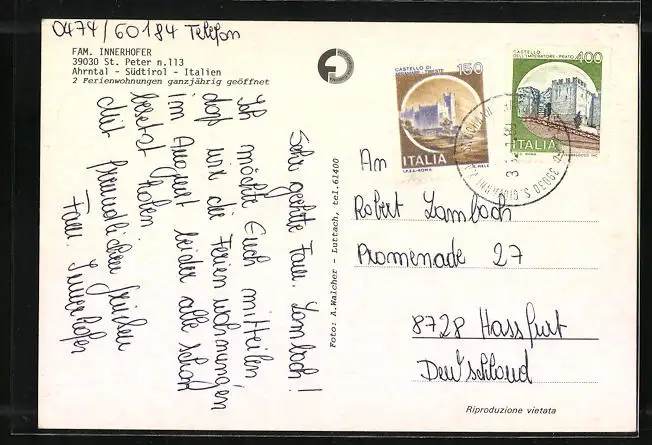 0474/60184 Telefon
FAM. INNERHOFER
39030 St. Peter n.113
Ahrntal - Südtirol - Italien
2 Ferienwohnungen ganzjährig geöffnet
Sehr geehrte Fam. Lambach!
Ich möchte Euch mitteilen
daß wir die Ferienwohnungen
im August leider alle schon
besetzt haben
Mit freundlichen Grüßen
Fam. Innerhofer
Foto: A.Walcher - Luttach, tel.61400
CASTELLO DI
150
ITALIA
I.P.Z.S. ROMA
CASTELLO
DELL'IMPERATORE - PRATO
400
ITALIA
39030 S. GIOVANNI
An
Robert Lambach
Promenade 27
8728 Hassfurt
Deutschland
Riproduzione vietata